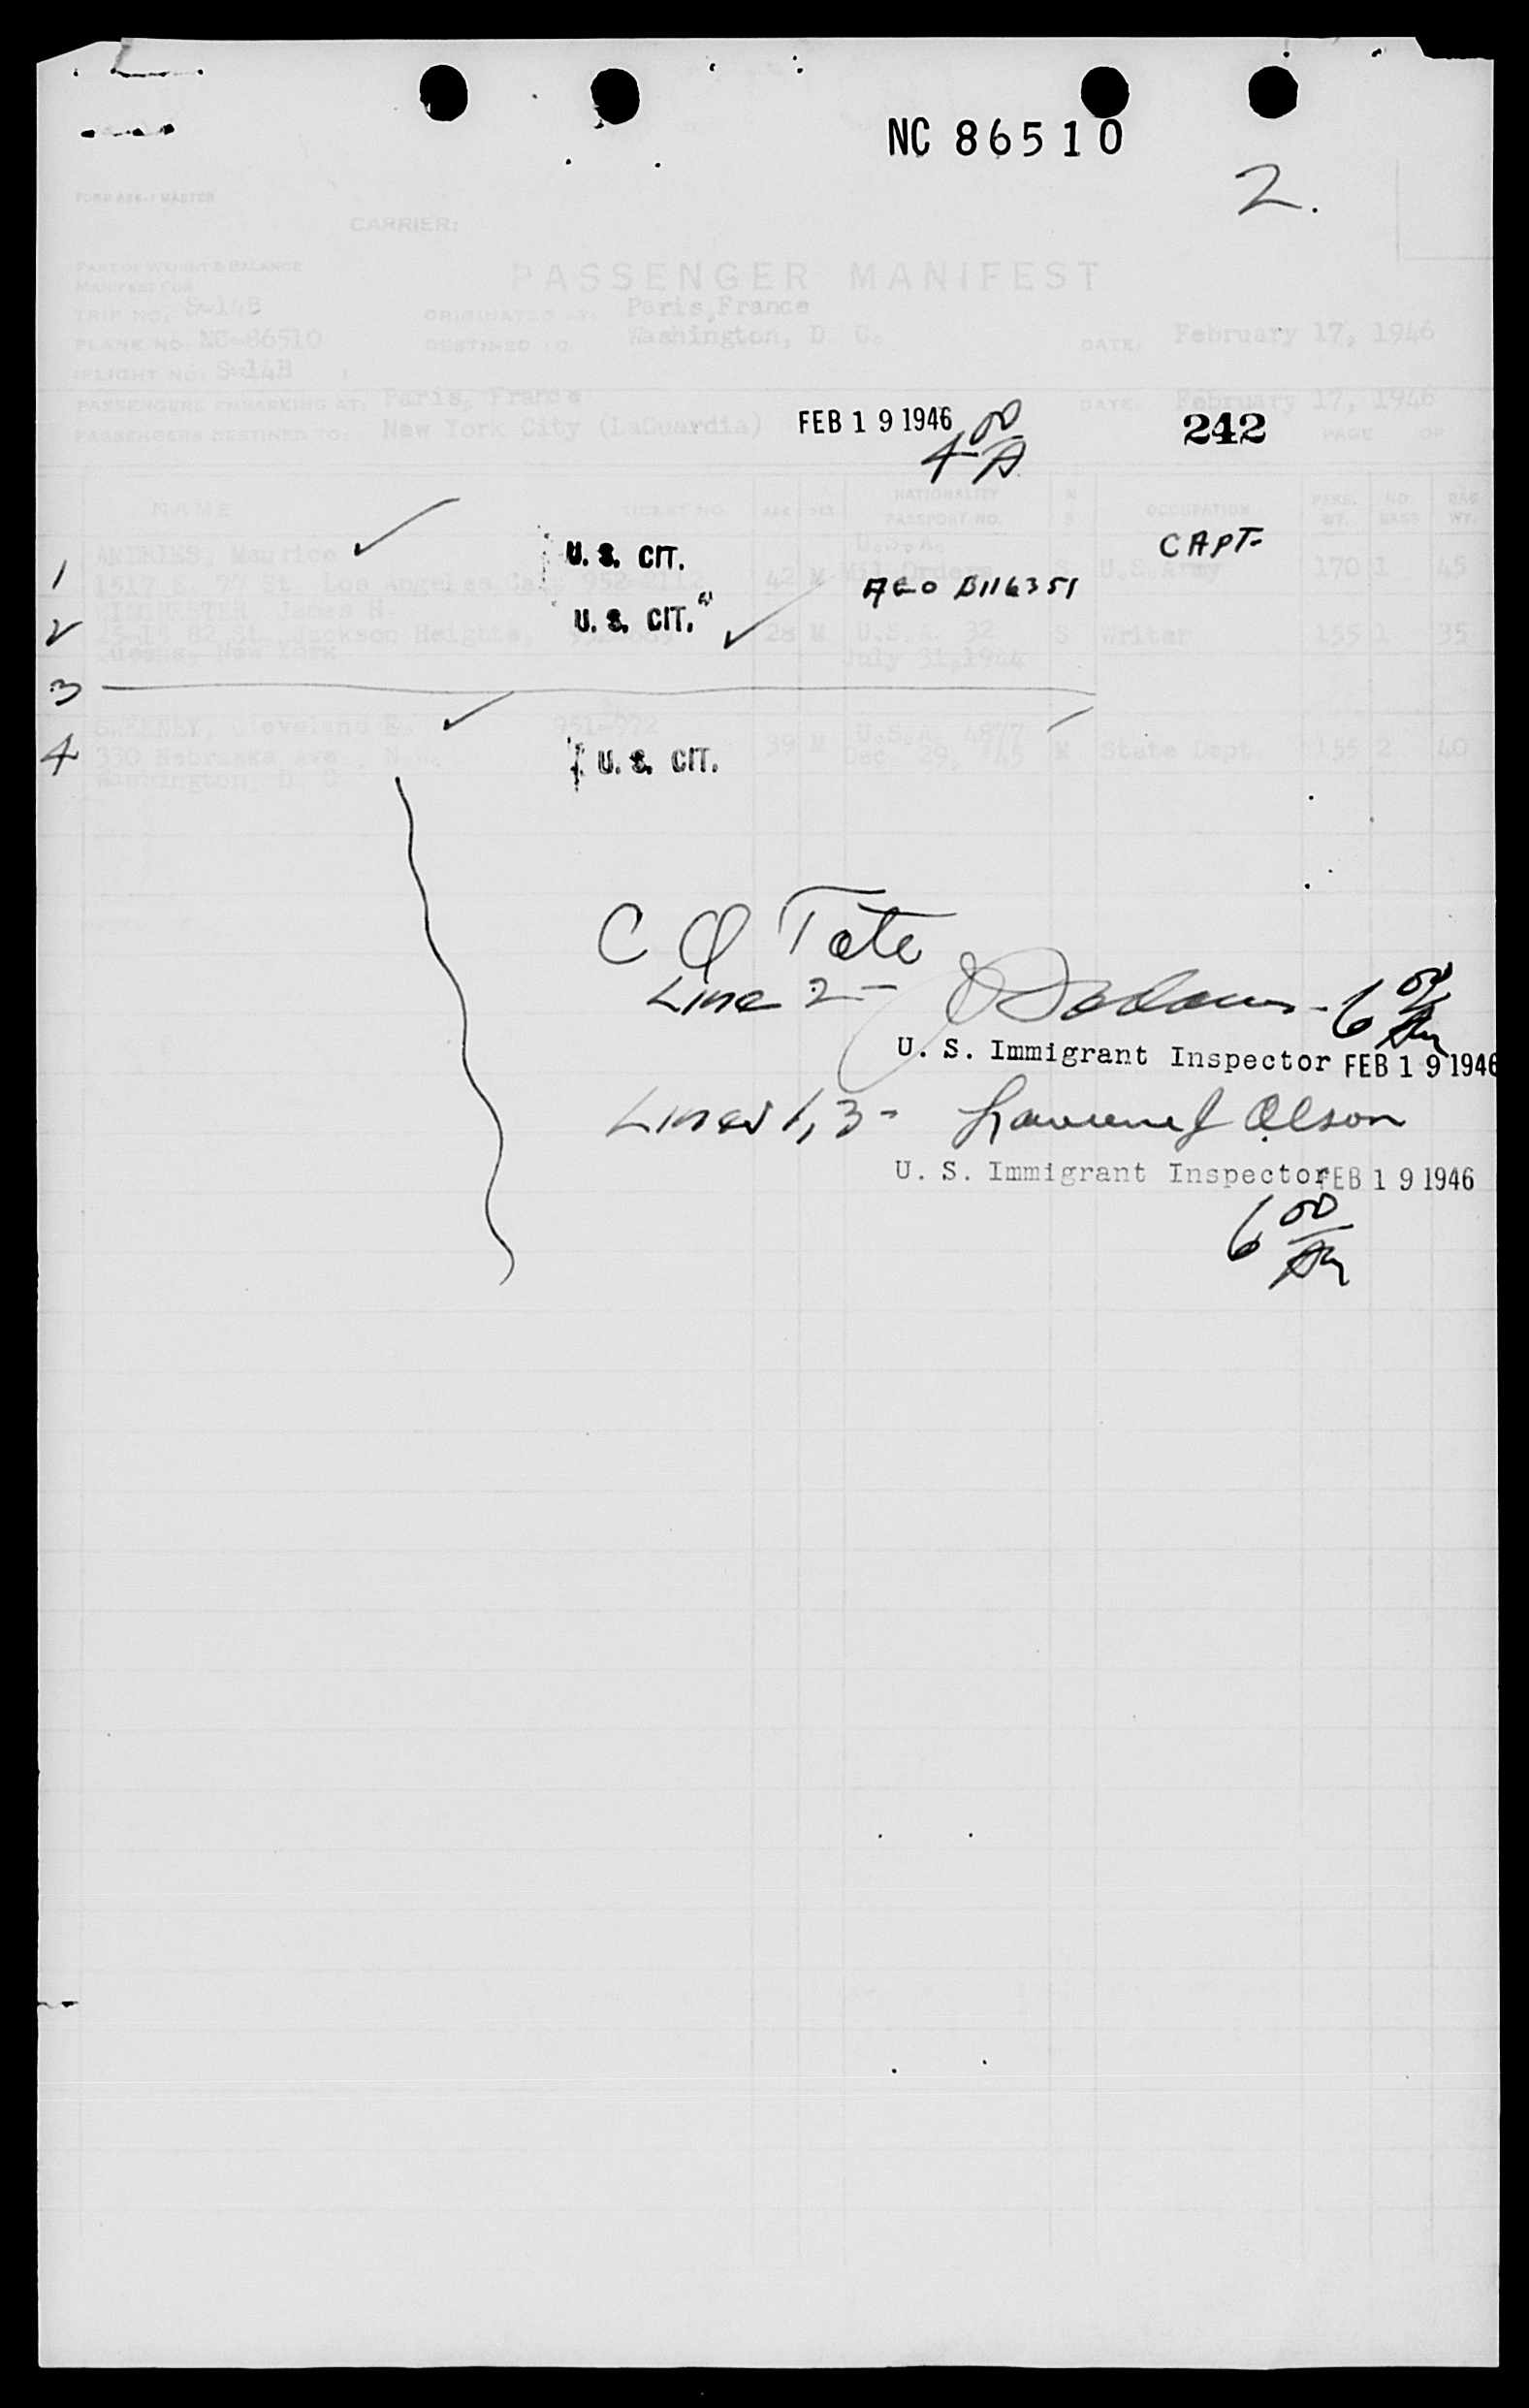 NC 86510
2.
CARRIER:
PART OF WEIGHT & BALANCE
PASSENGER MANIFEST
MANIFEST FOR
TRIP NO. S-14B
ORIGINATED AT: Paris, France
PLANE NO. NC-86510
DESTINED TO: Washington, D. C.
DATE: February 17, 1946
FLIGHT NO. S-14B
PASSENGERS EMBARKING AT: Paris, France
DATE: February 17, 1946
PASSENGERS DESTINED TO: New York City (LaGuardia)
FEB 19 1946
4 00 A
242
PAGE OF
NAME TICKET NO. AGE SEX NATIONALITY PASSPORT NO. OCCUPATION NO. BAGS BAG WT.
Maurice
U. S. CIT.
U.S.A.
CAPT-
1
1517 77 St. Los Angeles 952-2112 42 M Mil Orders S U.S.Army 170 1 45
AGO B116351
James
U. S. CIT.
2
82 St. Jackson Heights, 28 M U.S.A. 32 S Writer 155 1 35
New York
July 31, 1944
3
Cleveland E. 951-972
4
330 Nebraska Ave., N.W.
U. S. CIT.
39 M U.S.A. 4877
Dec 29, M State Dept. 2 40
Washington, D. C.
C Q Tate
Line 2 -
6 00
U. S. Immigrant Inspector FEB 19 1946
Lines 1, 3 - Olson
U. S. Immigrant Inspector FEB 19 1946
6 00